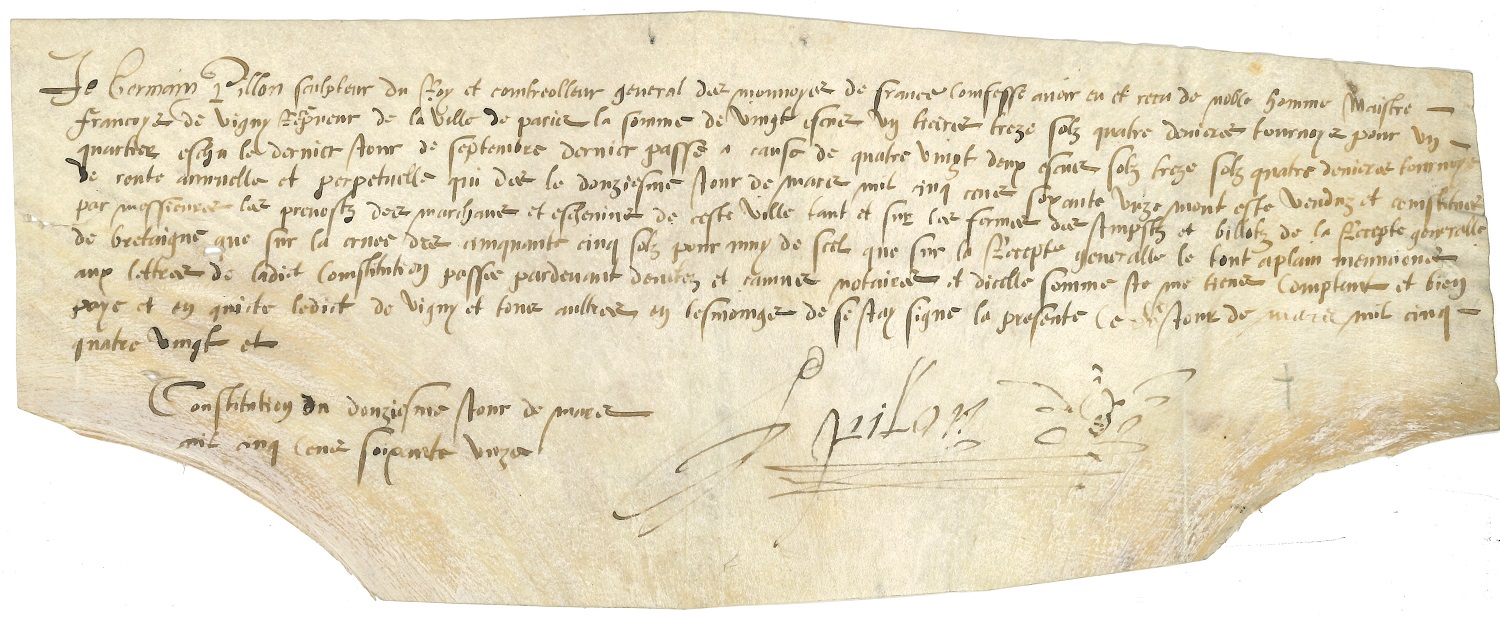 Je Germain Pillon sculpteur du Roy et contreolleur general des monnoyes de france Confesse avoir eu et receu de noble homme Maistre
francoys de Vigny Recepveur de la ville de paris la somme de vingt escus ung tiers treze solz quatre deniers tournoys pour un
quartier escheu le dernier Jour de septembre dernier passe a cause de quatre vingt deux escus solz treze solz quatre deniers tournoys
de rente annuelle et perpetuelle qui des le douziesme Jour de mars mil cinq cens soixante unze mont este venduz et constituez
par messieurs les prevostz des marchans et eschevins de ceste ville tant et sur les fermes des Impostz et billotz de la Recepte generalle
de bretaigne que sur la creue des cinquante cinq solz pour muy de seel que sur la Recepte generalle le tout aplain mencionne
aux lettres de ladict Constitution passee pardevant et camus notaires et dicelle somme Je me tiens Comptant et bien
paye et en quicte ledict de Vigny et tous aultres en tesmoing de se Jay signe la presente Ce Jour de mars mil cinq
quatre vingt et
Constitution du douziesme Jour de mars
mil cinq Cens soixante unze
G pilon